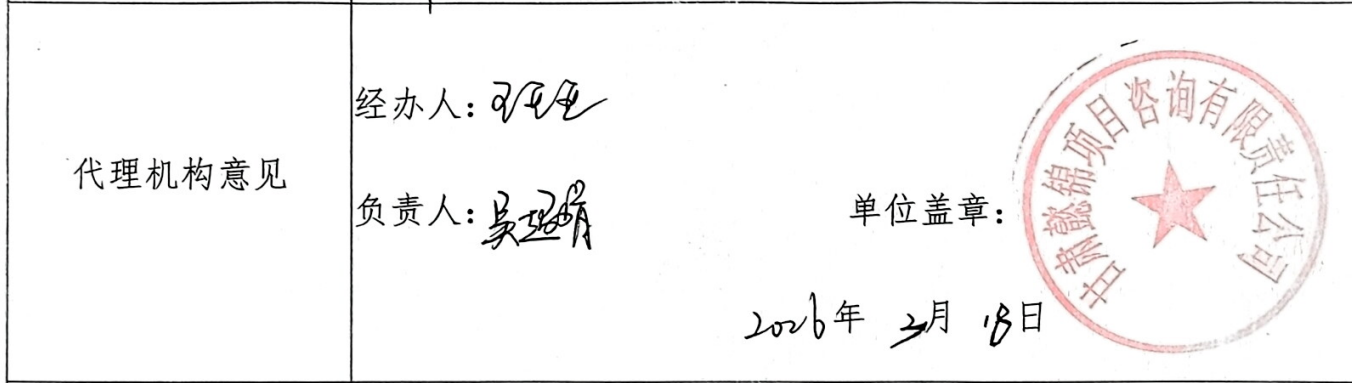 代理机构意见
经办人：
负责人：吴
单位盖章：
甘肃懿锦项目咨询有限责任公司
2026年 3月 18日